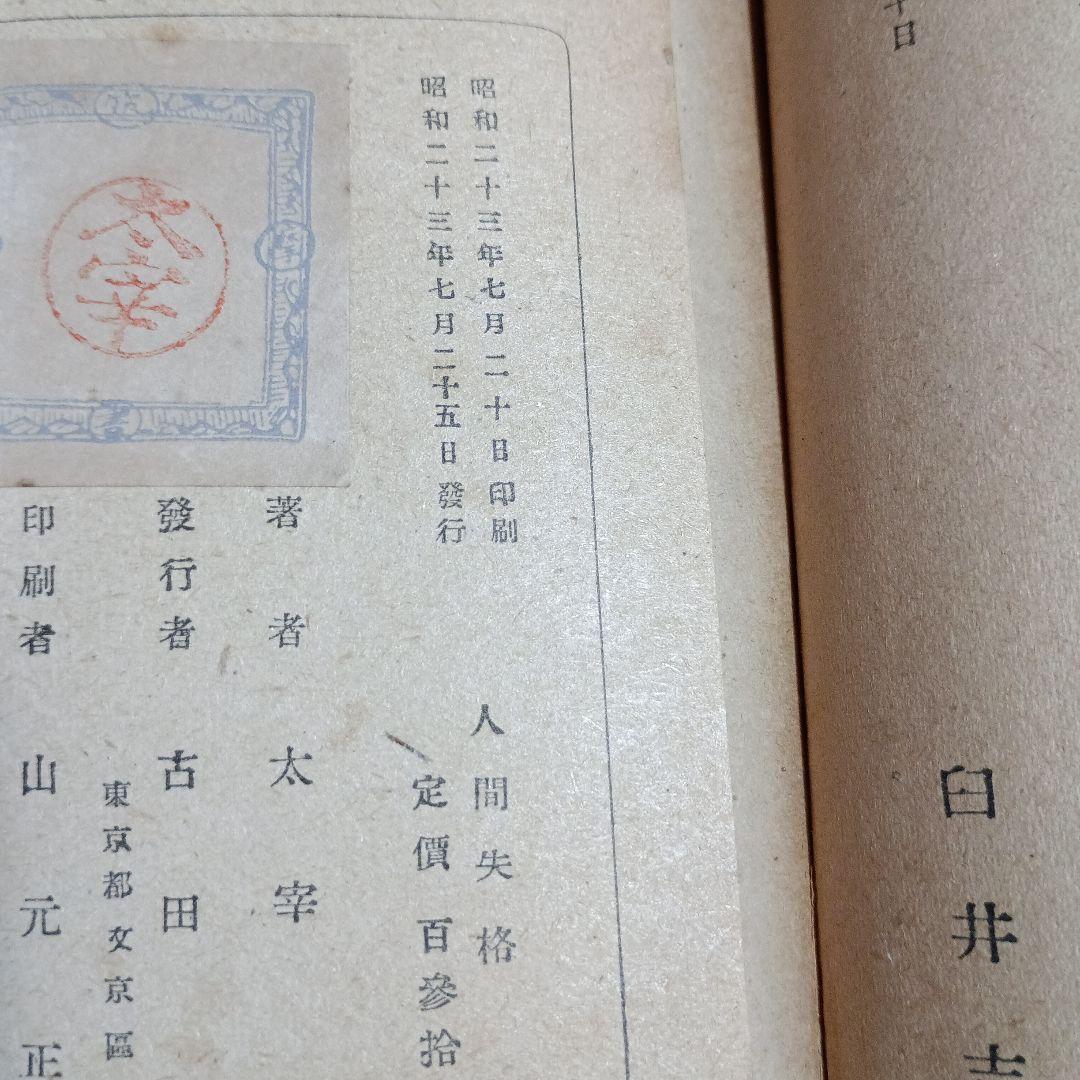 十日
臼井吉
昭和二十三年七月二十日印刷
昭和二十三年七月二十五日發行
人間失格
定價百參拾
太宰
著者 太宰
發行者 古田
東京都文京區
印刷者 山元正